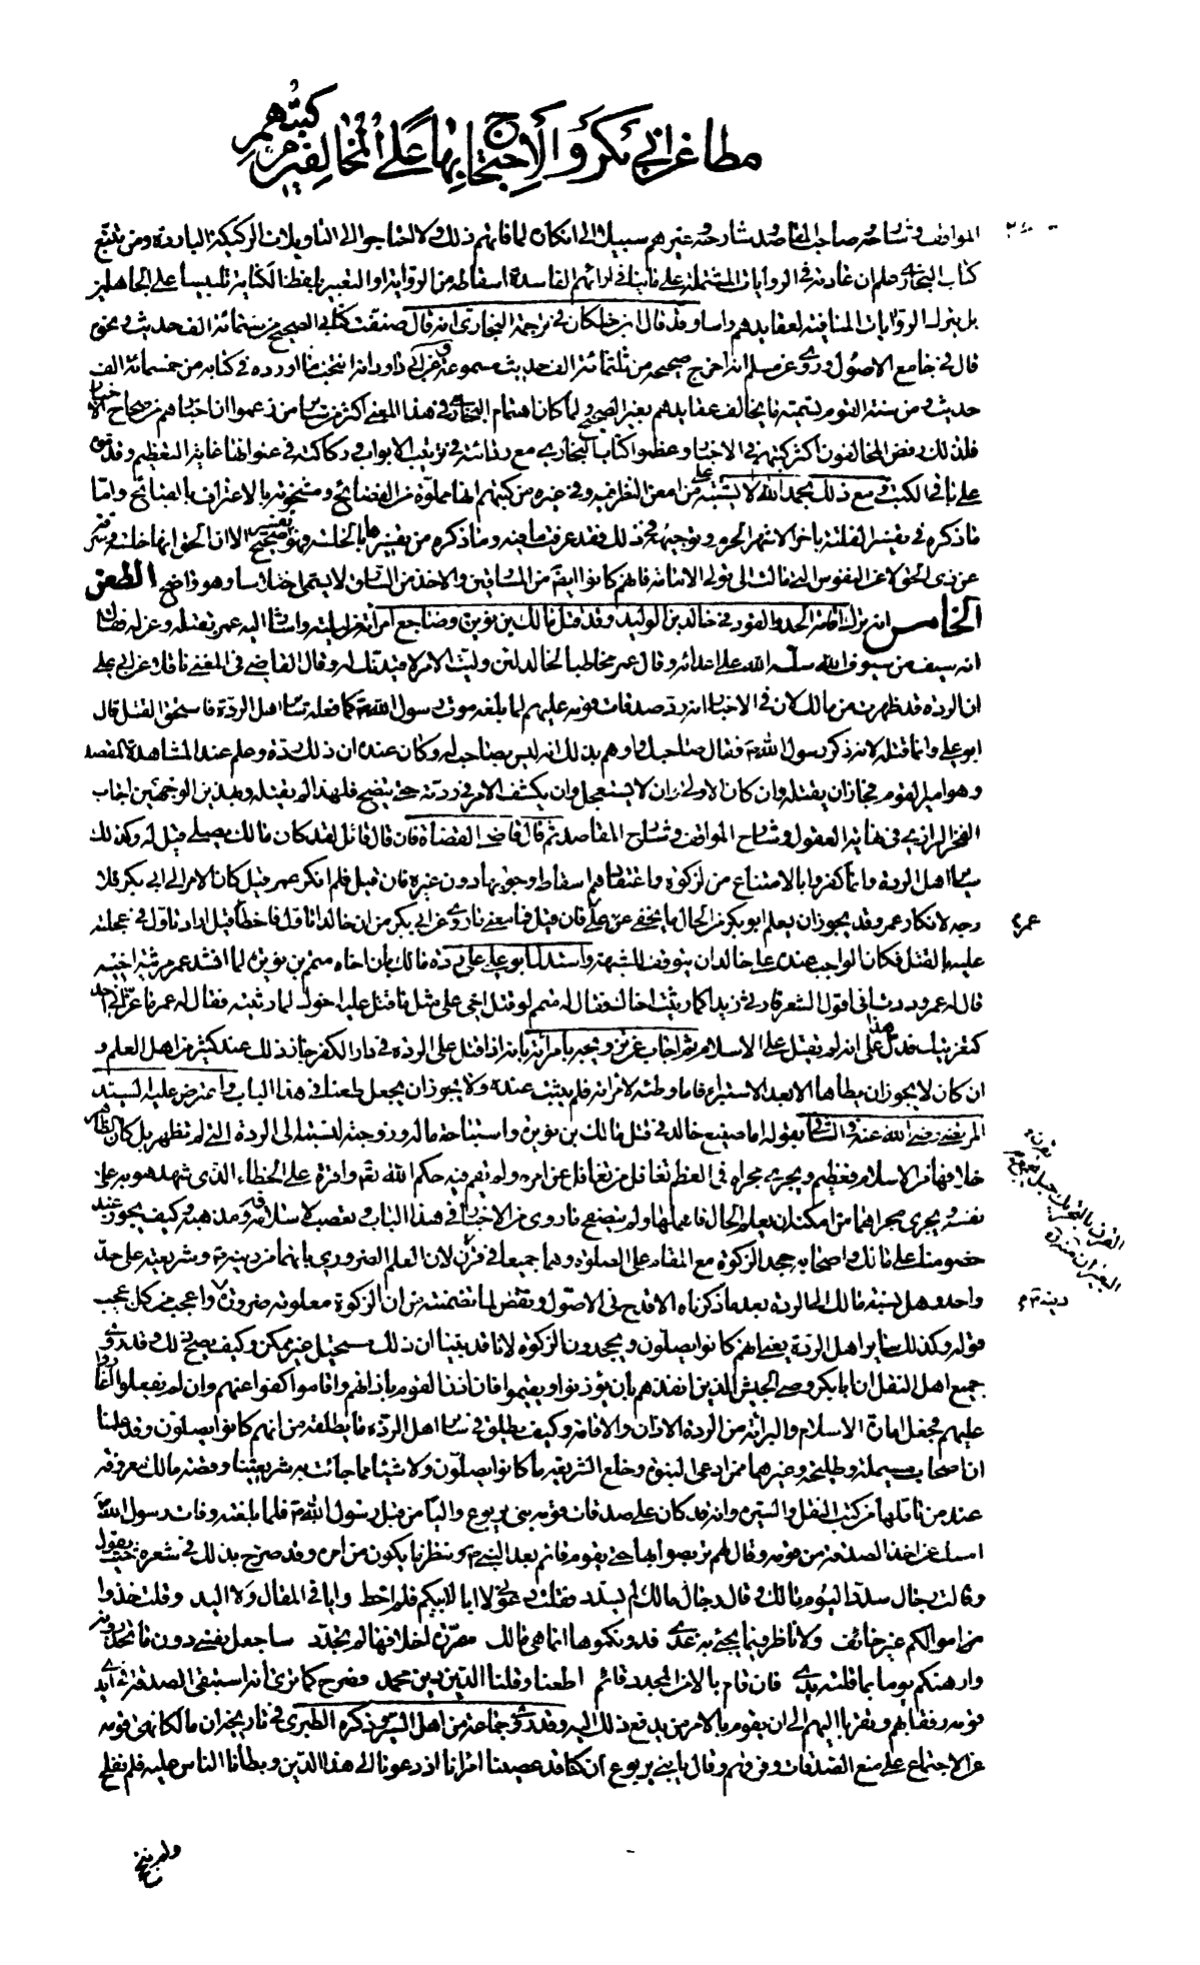 مطاعن ابي بكر والاحتجاج بها على المخالفين من كتبهم
المواقف وشارحه وصاحب المقاصد وشارحه وغيرهم سبيلا الى انكار لما فاتهم ذلك ولا احتاجوا الى التأويلات الركيكة الباردة ومن تتبع
كتاب البخاري علم ان عادته في الروايات المشتملة على ما ينافي ارائهم الفاسدة اسقاطه من الرواية او التعبير بلفظ الكناية تلبيسا على الجاهلين
بل يترك الروايات المنافية لعقايدهم راسا وقد قال ابن خلكان في ترجمة البخاري انه قال صنفت كتابي الصحيح من ستمائة الف حديث ونحوه
قال في جامع الاصول وروي عن مسلم انه اخرج صحيحه من ثلثمائة الف حديث مسموعة وعن ابي داود انه انتخب ما اورده في كتابه من خمسمائة الف
حديث ومن سنة القوم تسمية ما يخالف عقايدهم بغير الصحيح ولما كان اهتمام البخاري في هذا المعنى اكثر من ساير من زعموا ان اخبارهم من صحاح الاخبار
فلذلك رفض المخالفون اكثر كتبهم في الاخبار وعظموا كتاب البخاري مع رثاثته في ترتيب الابواب وركاكته في عنوانها غاية التعظيم وقدموه
على باقي الكتب ومع ذلك بحمد الله لا يشتبه على من امعن النظر فيه وفي غيره من كتبهم انها مملوة من الفضائح ومشحونة بالاعتراف بالقبائح واما
ما ذكره في تفسير الفلتة باخر الاشهر الحرم وتوجيهه في ذلك فقد عرفت ما فيه وما ذكره من تفسيرها بالخلسة وهو تفسير صحيح الا ان الحق انها خلسة وسرقة
عن ذي الحق لا عن النفوس التي مالت الى تولي الامامة فانهم كانوا ايضم من السارقين والاخذ من السارق لا يسمى اختلاسا وهو واضح الطعن
الخامس انه ترك اقامة الحد والقود في خالد بن الوليد وقد قتل مالك بن نويرة وضاجع امرأته من ليلته واشار اليه عمر بقتله وعزله فقال
انه سيف من سيوف الله سله الله على اعدائه وقال عمر مخاطبا لخالد لئن وليت الامر لاقيدنك له وقال القاضي في المغني ناقلا عن ابي علي
ان الردة قد ظهرت من مالك لان في الاخبار انه رد صدقات قومه عليهم لما بلغه موت رسول الله ص كما فعله ساير اهل الردة فاستحق القتل قال
ابو علي وانما قتله لانه ذكر رسول الله ص فقال صاحبك واوهم بذلك انه ليس بصاحب له وكان عنده ان ذلك ردة وعلم عند المشاهدة المقصد
وهو امير القوم فجاز ان يقتله وان كان الاولى ان لا يستعجل وان يكشف الامر في ردته حتى يتضح فلهذا لم يقتله وبهذين الوجهين اجاب
الفخر الرازي في نهاية العقول وشارح المواقف وشارح المقاصد ثم قال قاضي القضاة فان قال قائل لقد كان مالك يصلي قيل له وكذلك
ساير اهل الردة وانما كفروا بالامتناع من الزكوة واعتقادهم اسقاط وجوبها دون غيره فان قيل فلم انكر عمر قيل كان الامر الى ابي بكر فلا
وجه لانكار عمر وقد يجوز ان يعلم ابو بكر من الحال ما يخفى عن عمر فان قيل فما معنى ما روي عن ابي بكر من ان خالدا تاول فاخطأ قيل اراد تاول في عجلته
عليه بالقتل فكان الواجب عنده على خالد ان يتوقف للشبهة واستدل ابو علي على ردة مالك بان اخاه متمم بن نويرة لما انشد عمر مرثية اخيه
قال له عمر وددت اني اقول الشعر فارثي زيدا كما رثيت اخاك فقال له متمم لو قتل اخي على مثل ما قتل عليه اخوك لما رثيته فقال له عمر ما عزاني احد
كتعزيتك فدل هذا على انه لم يقتل على الاسلام ثم اجاب عن تزويجه بامرأته بانه اذا قتل على الردة في دار الكفر جاز ذلك عند كثير من اهل العلم و
ان كان لا يجوز ان يطأها الا بعد الاستبراء فاما وطئه لامرأته فلم يثبت عنده ولا يجوز ان يجعل طعنا في هذا الباب واعترض عليه السيد
المرتضى رضي الله عنه في الشافي بقوله اما صنيع خالد في قتل مالك بن نويرة واستباحة ماله وزوجته لنسبته الى الردة التي لم تظهر بل كان الظاهر
خلافها من الاسلام فعظيم ويجري مجراه في العظم تغافل من تغافل عن امره ولم يقم فيه حكم الله تع واقره على الخطاء الذي شهد هو به على
نفسه ويجري مجراهما من امكنه ان يعلم الحال فاهملها ولم يتصفح ما روي من الاخبار في هذا الباب وتعصب لاسلافه ومذهبه وكيف يجوز عند
خصومنا على مالك واصحابه جحد الزكوة مع المقام على الصلوة وهما جميعا في قرن لان العلم الضروري بانهما من دينه ع وشريعته على حد
واحد وهل نسبة مالك الى الردة بعد ما ذكرناه الا قدح في الاصول ونقض لما تضمنته من ان الزكوة معلومة ضرورة واعجب من كل عجب
قوله وكذلك ساير اهل الردة يعني انهم كانوا يصلون ويجحدون الزكوة لانا قد بينا ان ذلك مستحيل غير ممكن وكيف يصح ذلك وقد روى
جميع اهل النقل ان ابا بكر وصى الجيش الذين انفذهم بان يؤذنوا ويقيموا فان اذن القوم باذانهم واقاموا كفوا عنهم وان لم يفعلوا اغاروا
عليهم فجعل امارة الاسلام والبرائة من الردة الاذان والاقامة وكيف يطلق في ساير اهل الردة ما يطلقه من انهم كانوا يصلون وقد علمنا
ان اصحاب مسيلمة وطليحة وغيرهما ممن ادعى النبوة وخلع الشريعة ما كانوا يصلون ولا شيئا مما جائت به شريعتنا وقصة مالك معروفة
عند من تاملها من كتب النقل والسيرة وانه قد كان على صدقات قومه بني يربوع واليا من قبل رسول الله ص فلما بلغته وفات رسول الله ص
امسك عن اخذ الصدقة من قومه وقال لهم تربصوا بها حتى يقوم قائم بعد النبي ص وننظر ما يكون من امره وقد صرح بذلك في شعره حيث يقول
وقالت رجال سدد اليوم مالك وقال رجال مالك لم يسدد فقلت دعوني لا ابا لابيكم فلم اخط رايا في المقال ولا اليد وقلت خذوا
من اموالكم غير خائف ولا ناظر فيما يجئ به غدي فدونكموها انما هي مالكم مصررة اخلافها لم تجدد ساجعل نفسي دون ما تحذرونه
وارهنكم يوما بما قلته يدي فان قام بالامر المجدد قائم اطعنا وقلنا الدين دين محمد فصرح كما ترى انه استبقى الصدقة في ايدي
قومه رفقا بهم وتقربا اليهم الى ان يقوم بالامر من يدفع ذلك اليه وقد روى جماعة من اهل السير وذكره الطبري في تاريخه ان مالكا نهى قومه
عن الاجتماع على منع الصدقات وفرقهم وقال يا بني يربوع ان كنا قد عصينا امرائنا اذ دعونا الى هذا الدين وبطأنا الناس عليه فلم نفلح
عمر ع
القرن بالتحريك حبل يجمع به البعيران
دينه ص ع
ولم ننجح